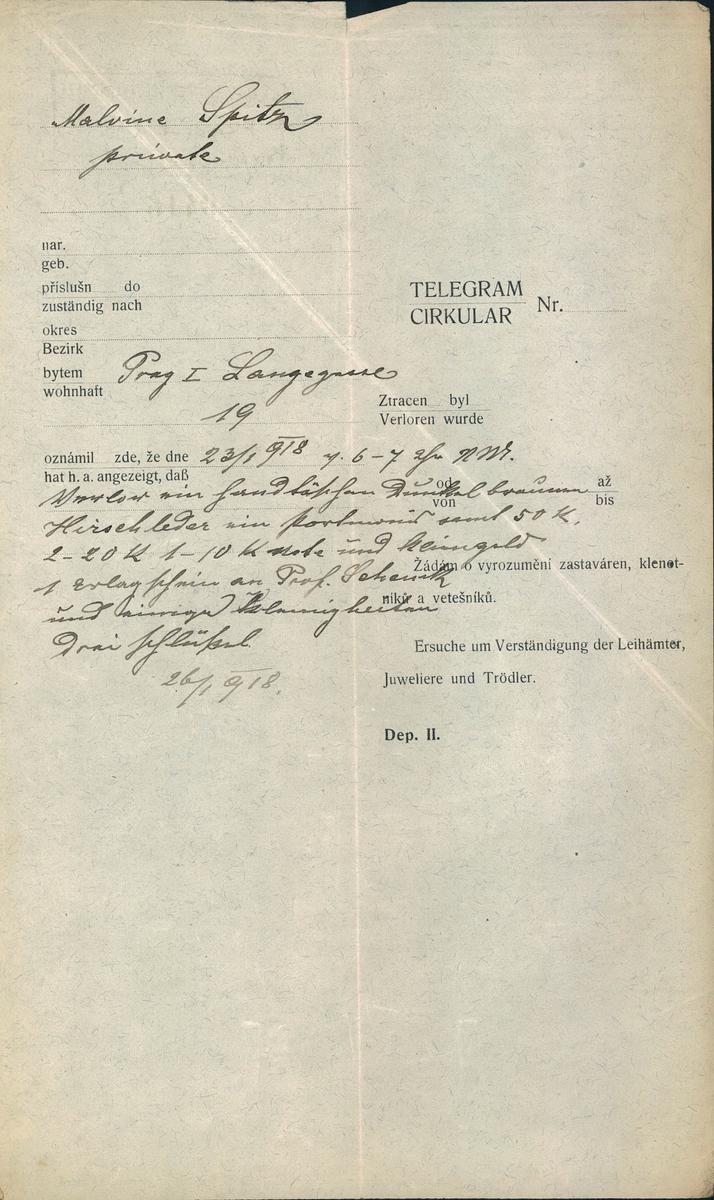 Malvine Spitz
private
nar.
geb.
příslušn do
zuständig nach
okres
Bezirk
bytem
wohnhaft
Prag I Langegasse
19
TELEGRAM
CIRKULAR Nr.
Ztracen byl
Verloren wurde
oznámil zde, že dne
hat h. a. angezeigt, daß
23/1 918 v. 6–7 Uhr NM.
od
von
až
bis
Verlor ein Handtäschen Dunkel braunen
Hirschleder ein Portmonis samt 50 K,
2–20 K 1–10 K Note und Kleingeld
1 Erlagschein an Prof. Schenk
und einige Kleinigkeiten
Drei Schlüßel.
26/1 918.
Žádám o vyrozumění zastaváren, klenot-
níků a vetešníků.
Ersuche um Verständigung der Leihämter,
Juweliere und Trödler.
Dep. II.